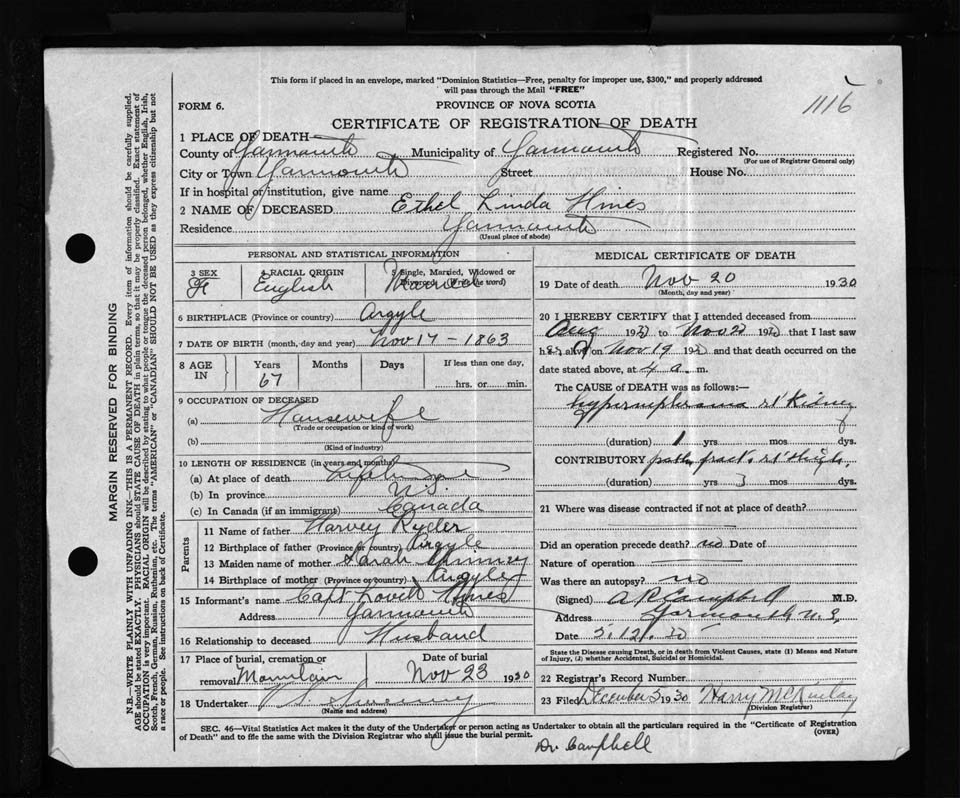 This form if placed in an envelope, marked "Dominion Statistics—Free, penalty for improper use, $300," and properly addressed
will pass through the Mail "FREE"
1116
FORM 6. PROVINCE OF NOVA SCOTIA
CERTIFICATE OF REGISTRATION OF DEATH
1 PLACE OF DEATH
County of Yarmouth Municipality of Yarmouth Registered No.
(For use of Registrar General only)
City or Town Yarmouth Street House No.
If in hospital or institution, give name
2 NAME OF DECEASED Ethel Linda Hines
Residence Yarmouth
(Usual place of abode)
PERSONAL AND STATISTICAL INFORMATION
3 SEX 4 RACIAL ORIGIN 5 Single, Married, Widowed or
Divorced (Write the word)
F English Married
6 BIRTHPLACE (Province or country) Argyle
7 DATE OF BIRTH (month, day and year) Nov 17 - 1863
8 AGE IN Years Months Days If less than one day,
67 hrs. or min.
9 OCCUPATION OF DECEASED
(a) Housewife
(Trade or occupation or kind of work)
(b)
(Kind of industry)
10 LENGTH OF RESIDENCE (in years and months)
(a) At place of death Lifetime
(b) In province N.S.
(c) In Canada (if an immigrant) Canada
Parents
11 Name of father Harvey Ryder
12 Birthplace of father (Province or country) Argyle
13 Maiden name of mother Sarah Spinney
14 Birthplace of mother (Province or country) Argyle
15 Informant's name Capt Lovitt Hines
Address Yarmouth
16 Relationship to deceased Husband
17 Place of burial, cremation or Date of burial
removal Mountain Nov 23 1930
18 Undertaker Sweeny
(Name and address)
MEDICAL CERTIFICATE OF DEATH
19 Date of death Nov 20 1930
(Month, day and year)
20 I HEREBY CERTIFY that I attended deceased from
Aug 19 to Nov 20 19 that I last saw
her alive on Nov 19 19 and that death occurred on the
date stated above, at 4 a. m.
The CAUSE of DEATH was as follows:—
hypernephroma rt Kidney
(duration) 1 yrs mos dys.
CONTRIBUTORY path. fract. rt thigh
(duration) yrs 3 mos dys.
21 Where was disease contracted if not at place of death?
Did an operation precede death? no Date of
Nature of operation
Was there an autopsy? no
(Signed) A R Campbell M.D.
Address Yarmouth N.S.
Date 3.12.30
State the Disease causing Death, or in death from Violent Causes, state (1) Means and Nature
of Injury, (2) whether Accidental, Suicidal or Homicidal.
22 Registrar's Record Number
23 Filed December 3 1930 Harry McKinlay
(Division Registrar)
SEC. 46—Vital Statistics Act makes it the duty of the Undertaker or person acting as Undertaker to obtain all the particulars required in the "Certificate of Registration
of Death" and to file the same with the Division Registrar who shall issue the burial permit. (OVER)
Dr Campbell
MARGIN RESERVED FOR BINDING
N.B.—WRITE PLAINLY WITH UNFADING INK—THIS IS A PERMANENT RECORD. Every item of information should be carefully supplied.
AGE should be stated EXACTLY. PHYSICIANS should STATE CAUSE OF DEATH in plain terms, so that it may be properly classified. Exact statement of
OCCUPATION is very important. RACIAL ORIGIN will be described by stating to what people or tongue the deceased person belonged, whether English, Irish,
Scotch, French, German, Russian, Ruthenian, etc. The terms "AMERICAN" or "CANADIAN" SHOULD NOT BE USED as they express citizenship but not
a race or people. See instructions on back of Certificate.